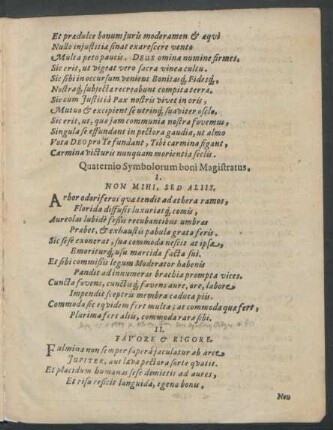 Et prædulce bonum juris moderamen & æqvi
Nullo injustitia sinat exarescere vento
Multa peto paucis. DEUS omina nomine firmes.
Sic erit, ut vigeat vero sacra vinea cultu.
Sic sibi in occursum venient Bonitasq́, Fidesq́,
Nostraq́, subjecta recreabunt compita terra.
Sic cum Justitiâ Pax nostris vivet in oris,
Mutuo & excipient se utrinq́, suaviter osclo.
Sic erit, ut, quæ jam communia nostra fovemus,
Singula se effundant in pectora gaudia, ut almo
Vota DEO pro Te fundant, Tibi carmina pigant,
Carmina victuris nunquam morientia seclis.
Quaternio Symbolorum boni Magistratus,
I.
NON MIHI, SED ALIIS.
Arbor odoriferos quæ tendit ad æthera ramos,
Florida diffusis luxuriatq́, comis,
Aureolas lubidè fessis recubantibus umbras
Præbet, & exhaustis pabula grata feris.
Sic sese exonerat, sua commoda nescit at ipsa,
Emoriturq́, usu marcida facta sui.
Et sibi commissis legum Moderator habenis
Pandit ad innumeras brachia prompta vices.
Cuncta fovens, cunctisq́, favens aure, ore, labore
Impendit sceptris membra caduca piis.
Commoda sic eqvidem fert multa; at commoda quæ fert,
Plurima fert aliis, commoda rara sibi.
II.
FAVORE & RIGORE.
Fulmina non semper superâ jaculatur ab arce
JUPITER, aut læva pectora sorte quatit.
Et placidum humanas sese demittit ad aures,
Et risu reficit languida, egena bonis,
Neu